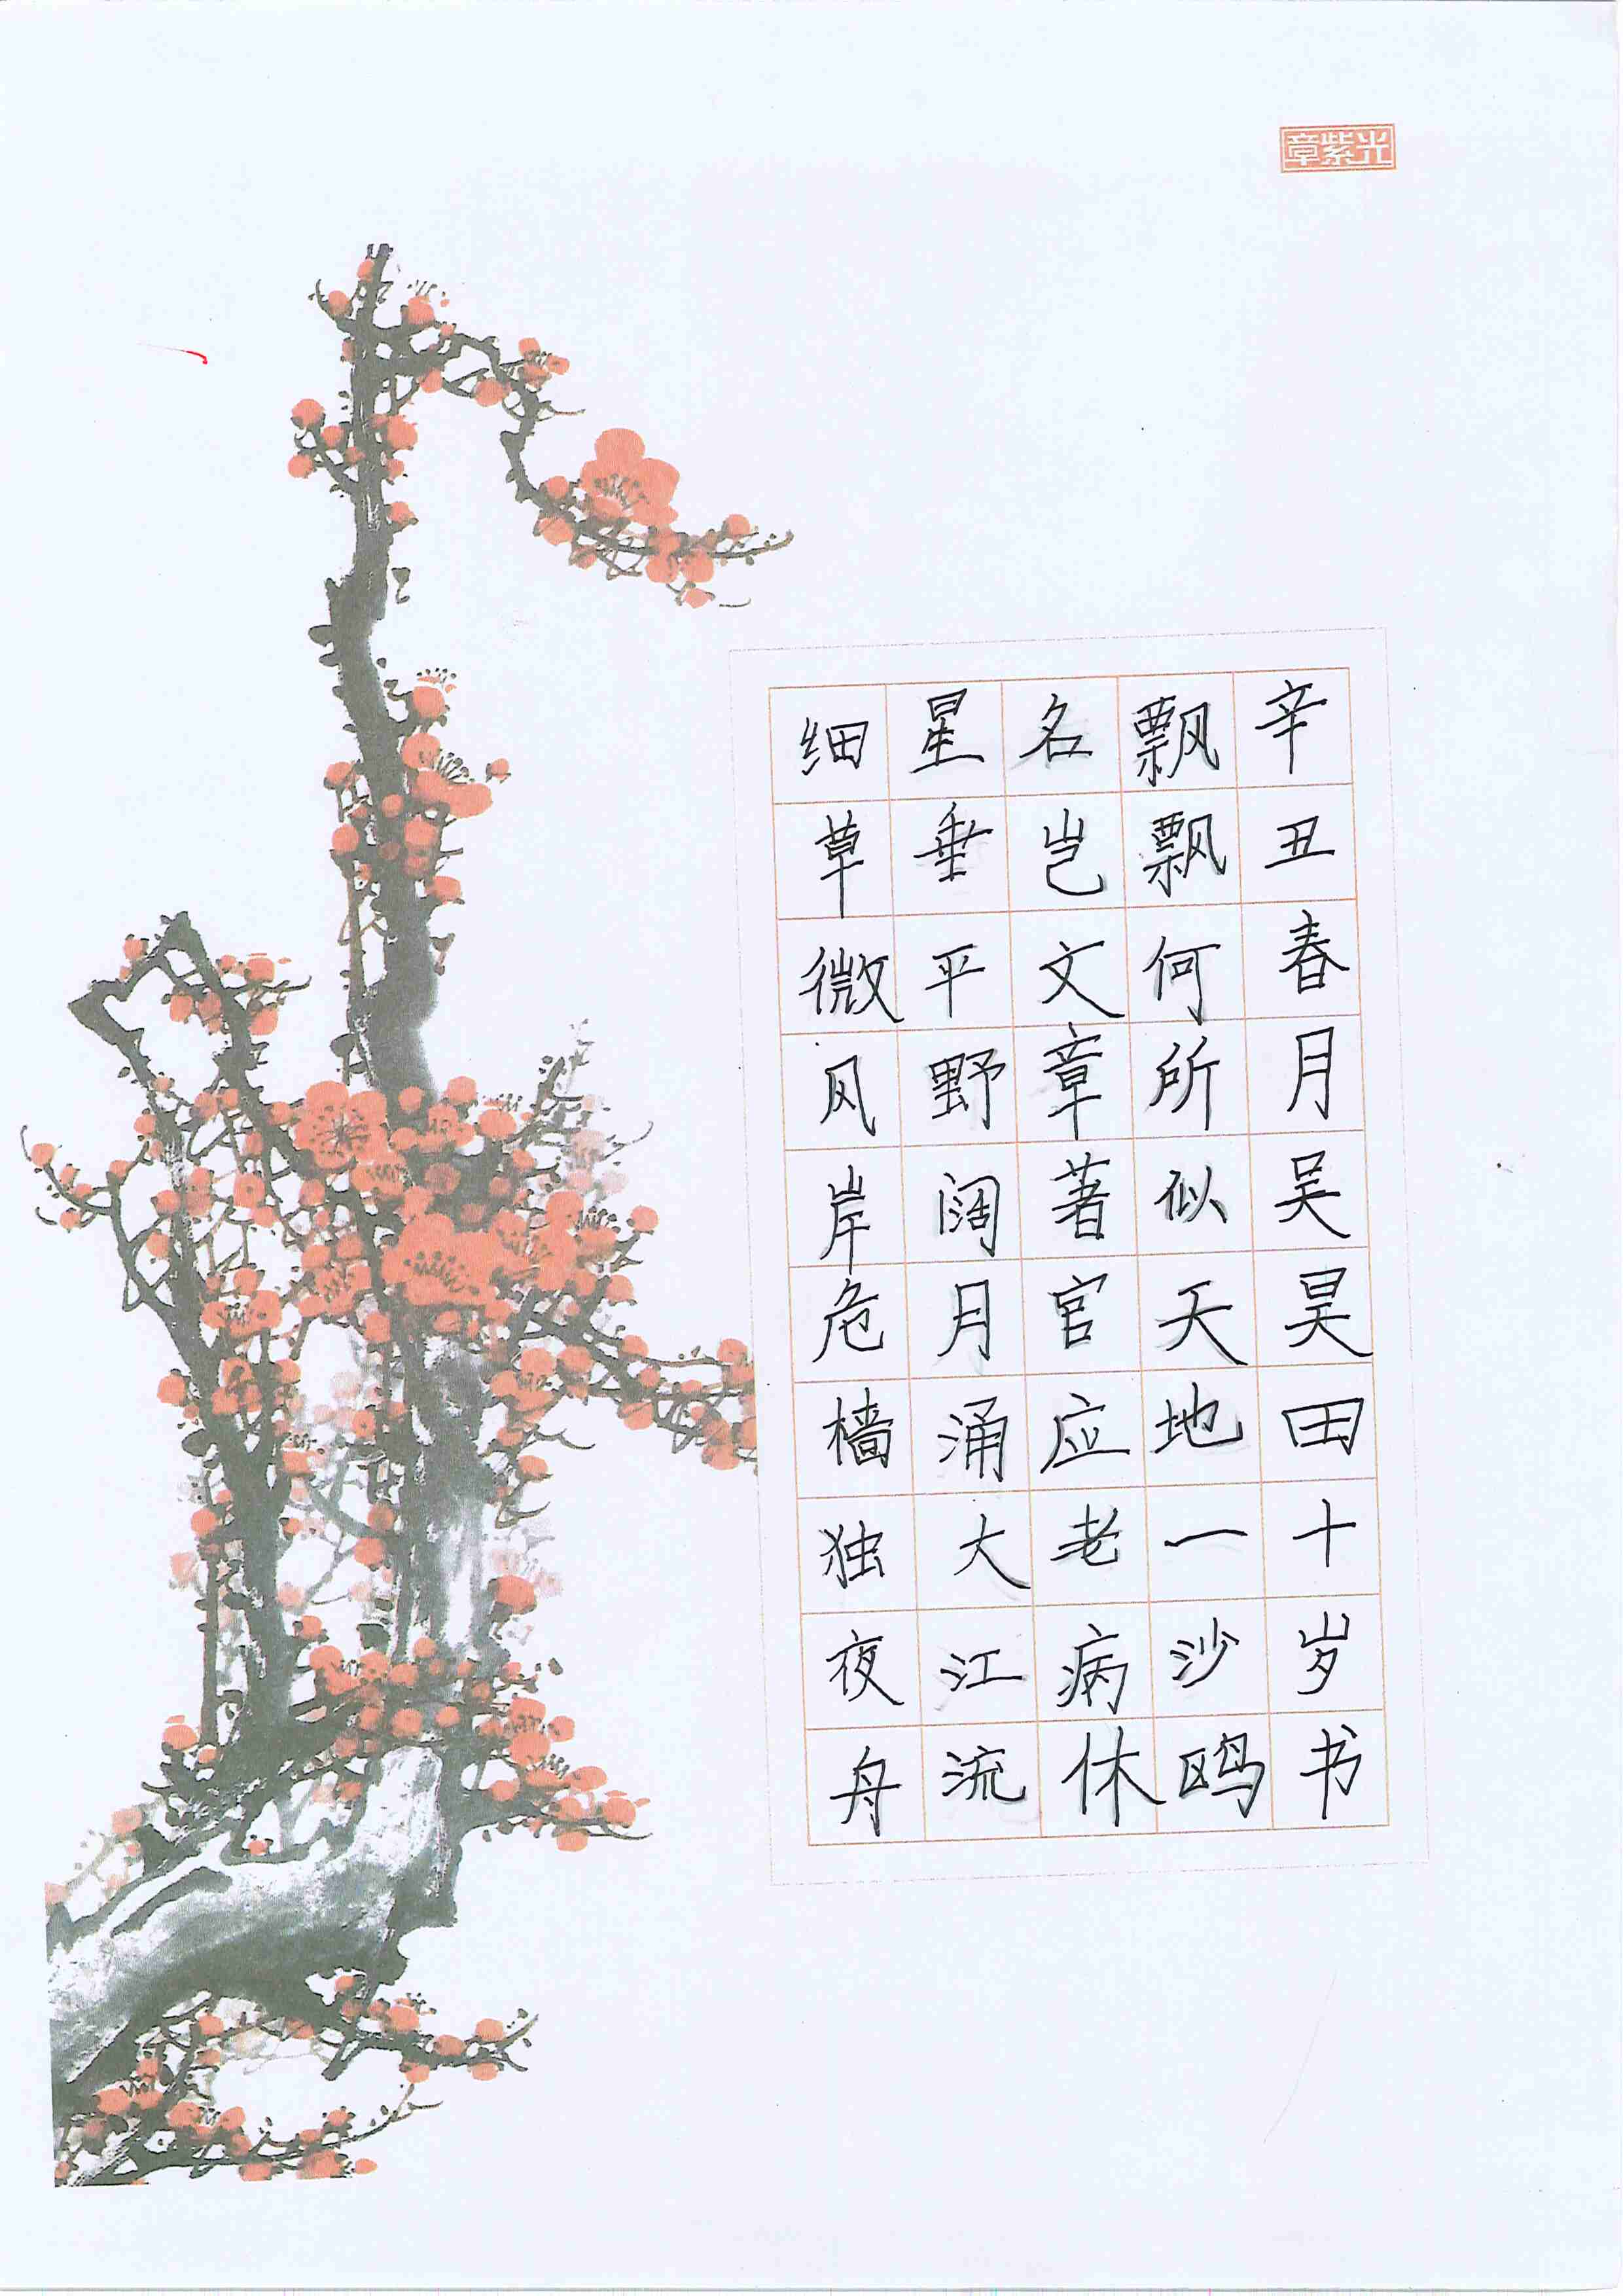 章紫光
细草微风岸危樯独夜舟
星垂平野阔月涌大江流
名岂文章著官应老病休
飘飘何所似天地一沙鸥
辛丑春月吴昊田十岁书